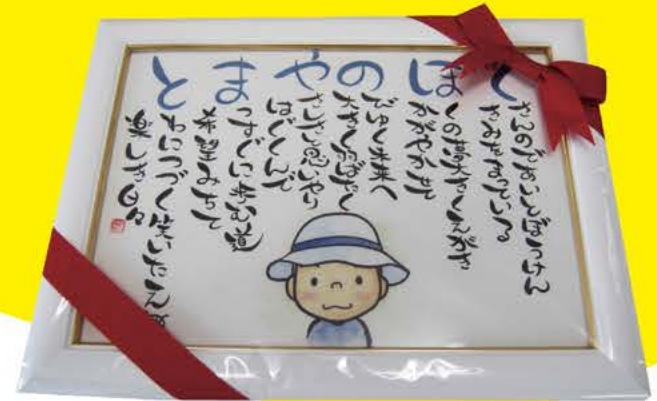 とまやのぼく
さんのであいとぼうけん
きみをまっている
くの夢大きくえがき
かがやかせ
びゆく未来へ
大きく羽ばたく
さしさ思いやり
はぐくんで
っすぐに歩む道
希望みちて
わにつづく笑いたえぬ
楽しき日々